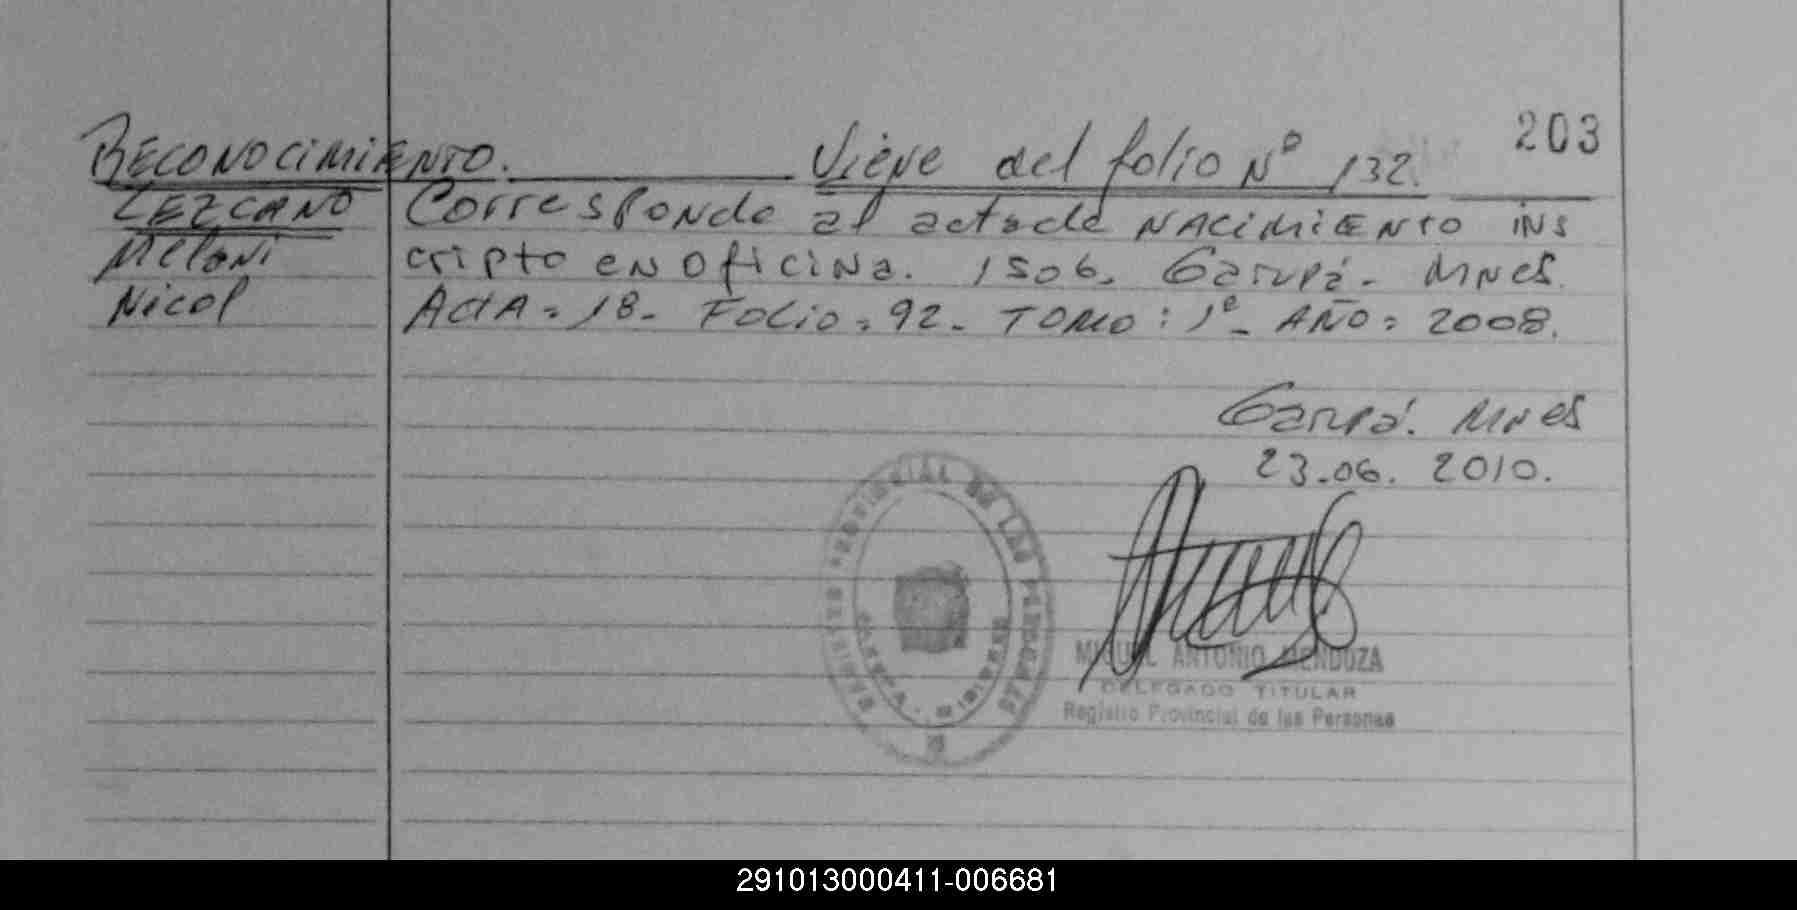 203
RECONOCIMIENTO. Viene del folio Nº 132.
LEZCANO Corresponde al acta de NACIMIENTO ins
Meloni cripto en Oficina. 1506. Garupá - Mnes.
Nicol Acta = 18 - Folio = 92 - TOMO : 1º - AÑO = 2008.
Garupá. Mnes
23.06. 2010.
REGISTRO PROVINCIAL DE LAS PERSONAS
MISIONES
MIGUEL ANTONIO MENDOZA
DELEGADO TITULAR
Registro Provincial de las Personas
291013000411-006681